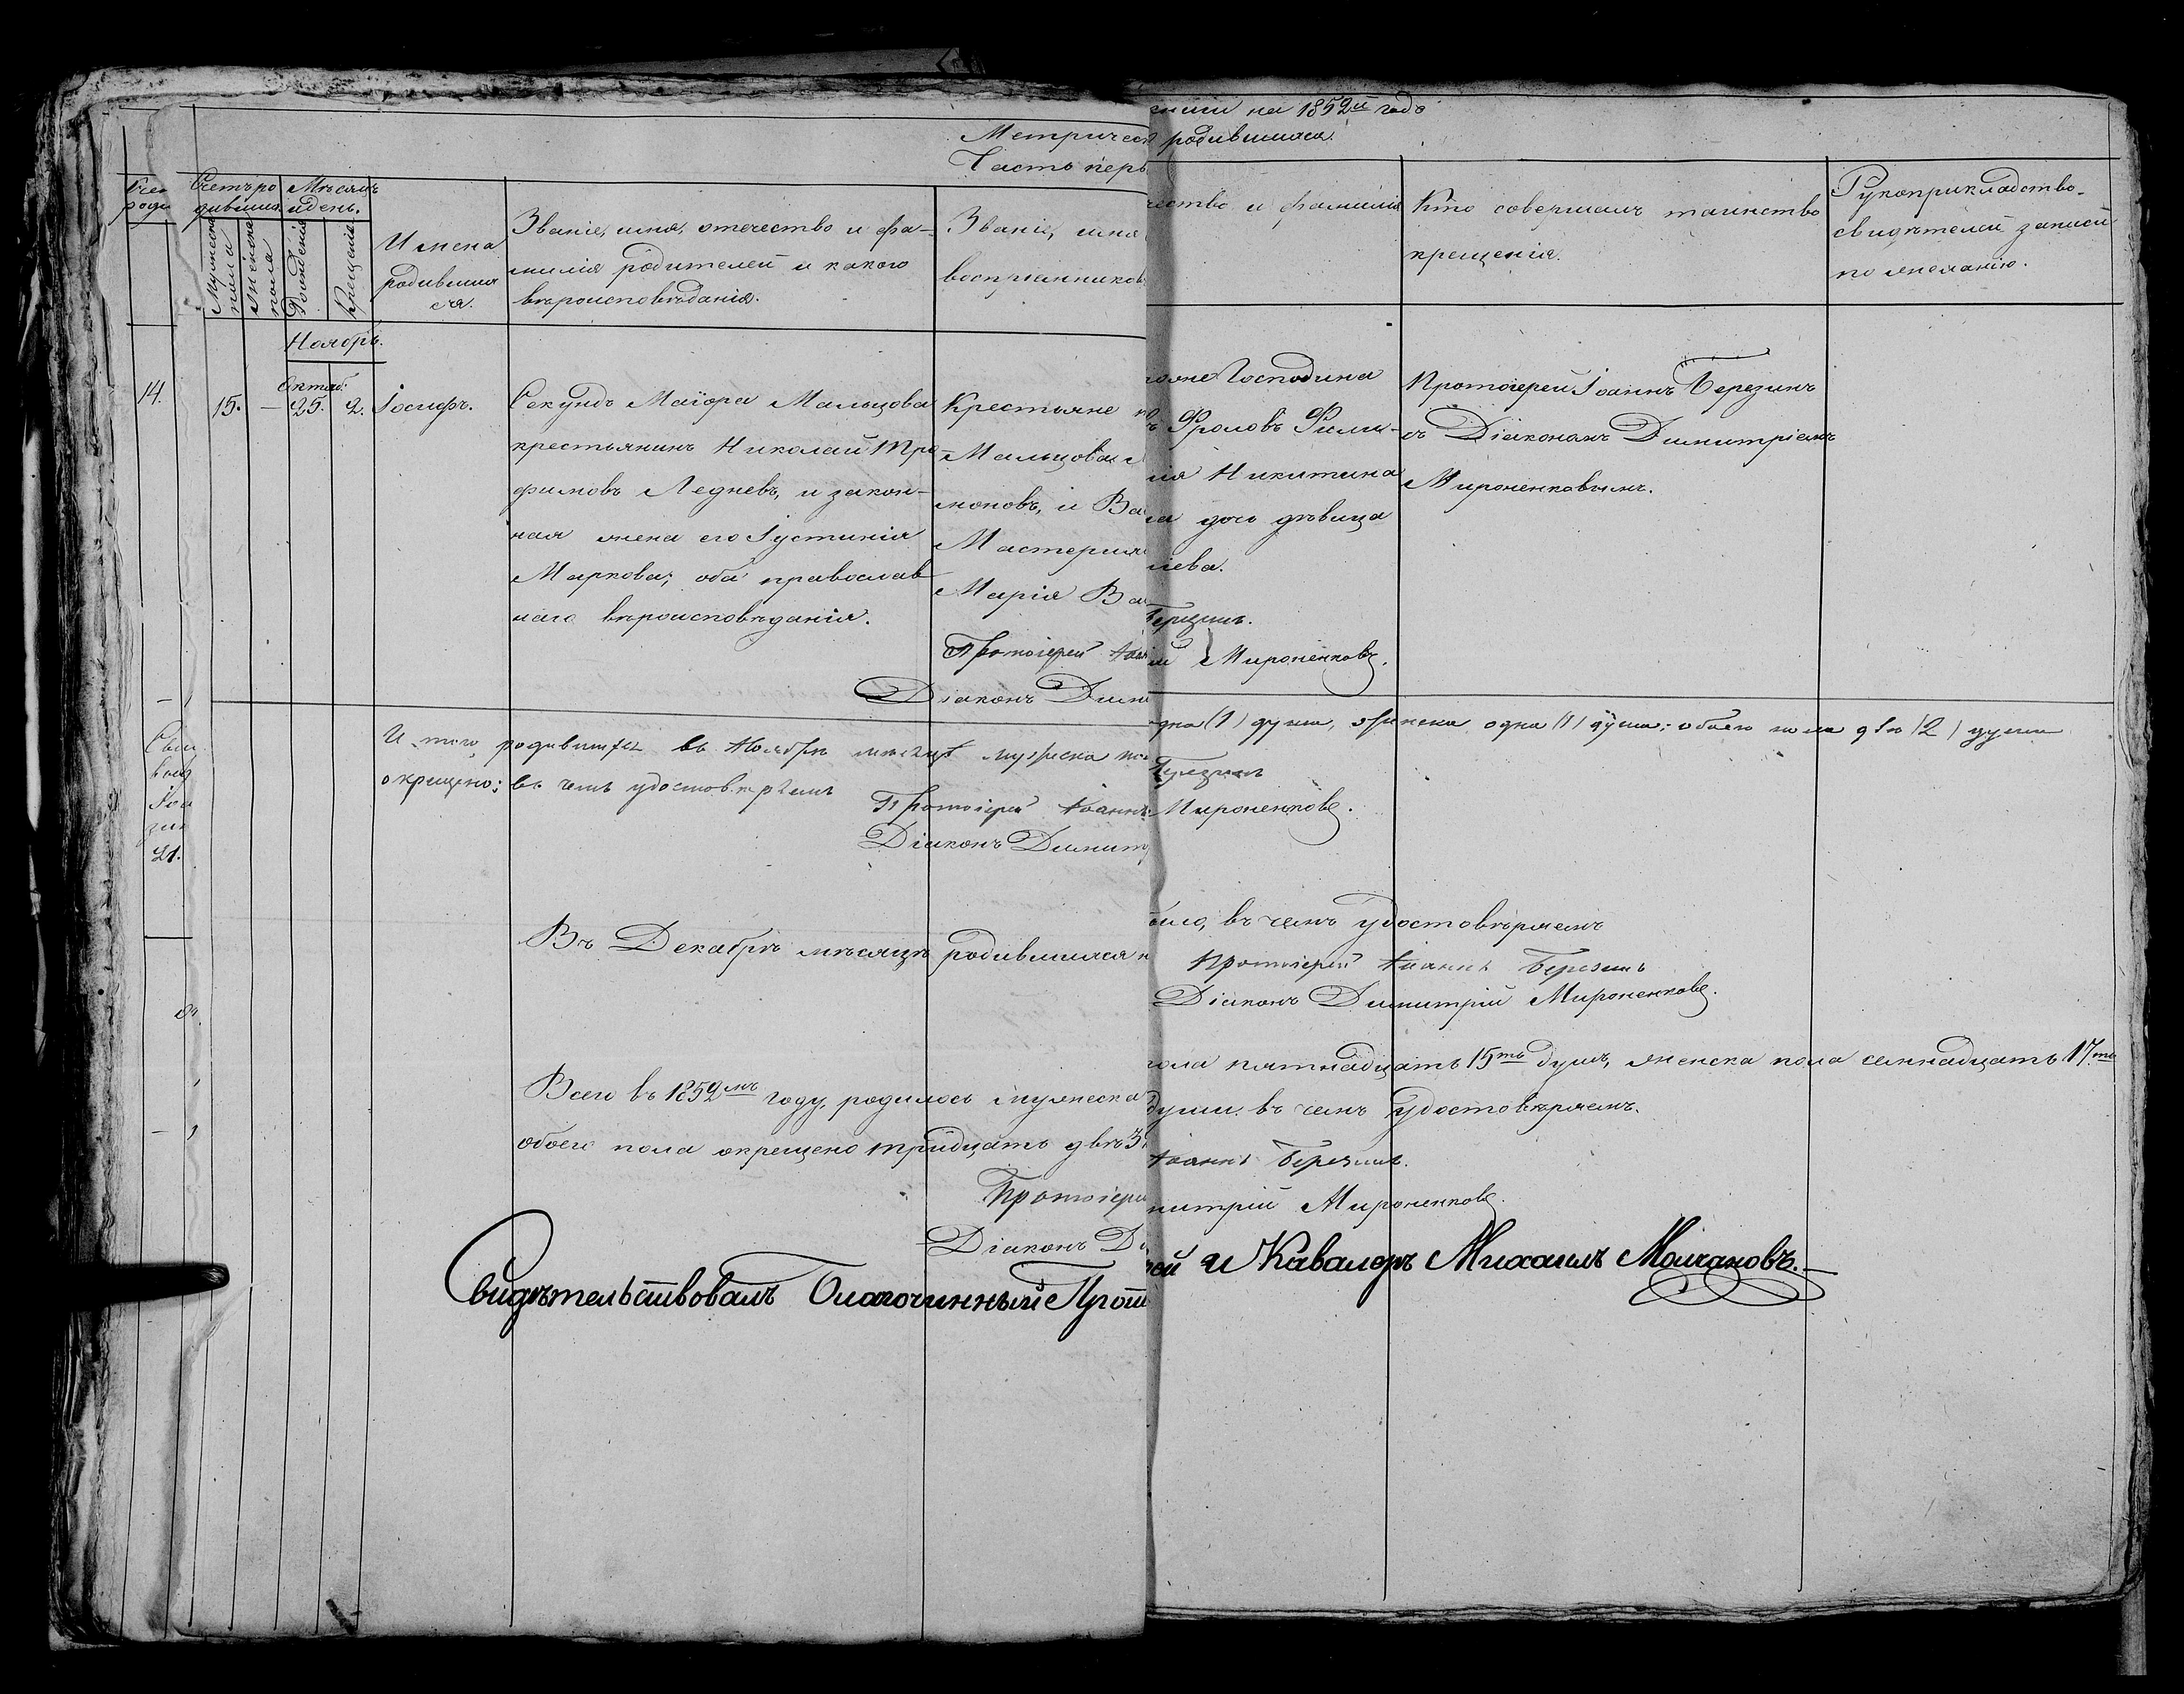 Метричес
Часть перв
гниги на 1852й годъ
родившихся.
Счетъ ро
дившихся.
Мѣсяцъ
и день.
Мужеска
пола
Женска
пола
Рожденія
Крещенія.
Имена
родивших
ся.
Званіе, имя, отечество и фа-
милія родителей и какого
вѣроисповѣданія.
Званіе, имя
воспріемниковъ
чество и фамилія
Кто совершалъ таинство
крещенія.
Рукоприкладство
свидѣтелей записи
по желанію.
Ноябрь.
14.
15.
—
Октяб:
25.
2.
Іосифъ.
Секундъ Маіора Мальцова
крестьянинъ Николай Тро
фимовъ Ледневъ, и закон-
ная жена его Іустинія
Маркова; оба православ
наго вѣроисповѣданія.
Крестьяне
Мальцова
моновъ, и Ва
Мастерия
Марія Ва
Протоіерей Іоа
Діаконъ Дими
Господина
Фроловъ Фили-
ія Никитина
дочь дѣвица
іева.
Березинъ.
Мироненковъ.
Протоіерей Іоаннъ Березинъ
съ Діакономъ Димитріемъ
Мироненковымъ.
И того родившихся въ Ноябрѣ мѣсяцѣ мужеска по
дна (1) душа, женска одна (1) душа; обоего пола двѣ (2) души
окрещено; въ чемъ удостовѣряемъ
Протоіерей Іоаннъ
Березинъ
Діаконъ Димит
Мироненковъ.
21.
Въ Декабрѣ мѣсяцѣ родившихся н
было, въ чемъ удостовѣряемъ
Протоіерей Іоаннъ Березинъ
Діаконъ Димитрій Мироненковъ.
Всего въ 1852мъ году, родилось мужеска
пола пятнадцать 15ть душъ, женска пола семнадцать 17ть
обоего пола окрещено тридцать двѣ 3
души. въ чемъ удостовѣряемъ.
Протоіере
Іоаннъ Березинъ.
Діаконъ Ди
митрій Мироненковъ.
Свидѣтельствовалъ Благочинный Прот
рей и Кавалеръ Михаилъ Молчановъ.